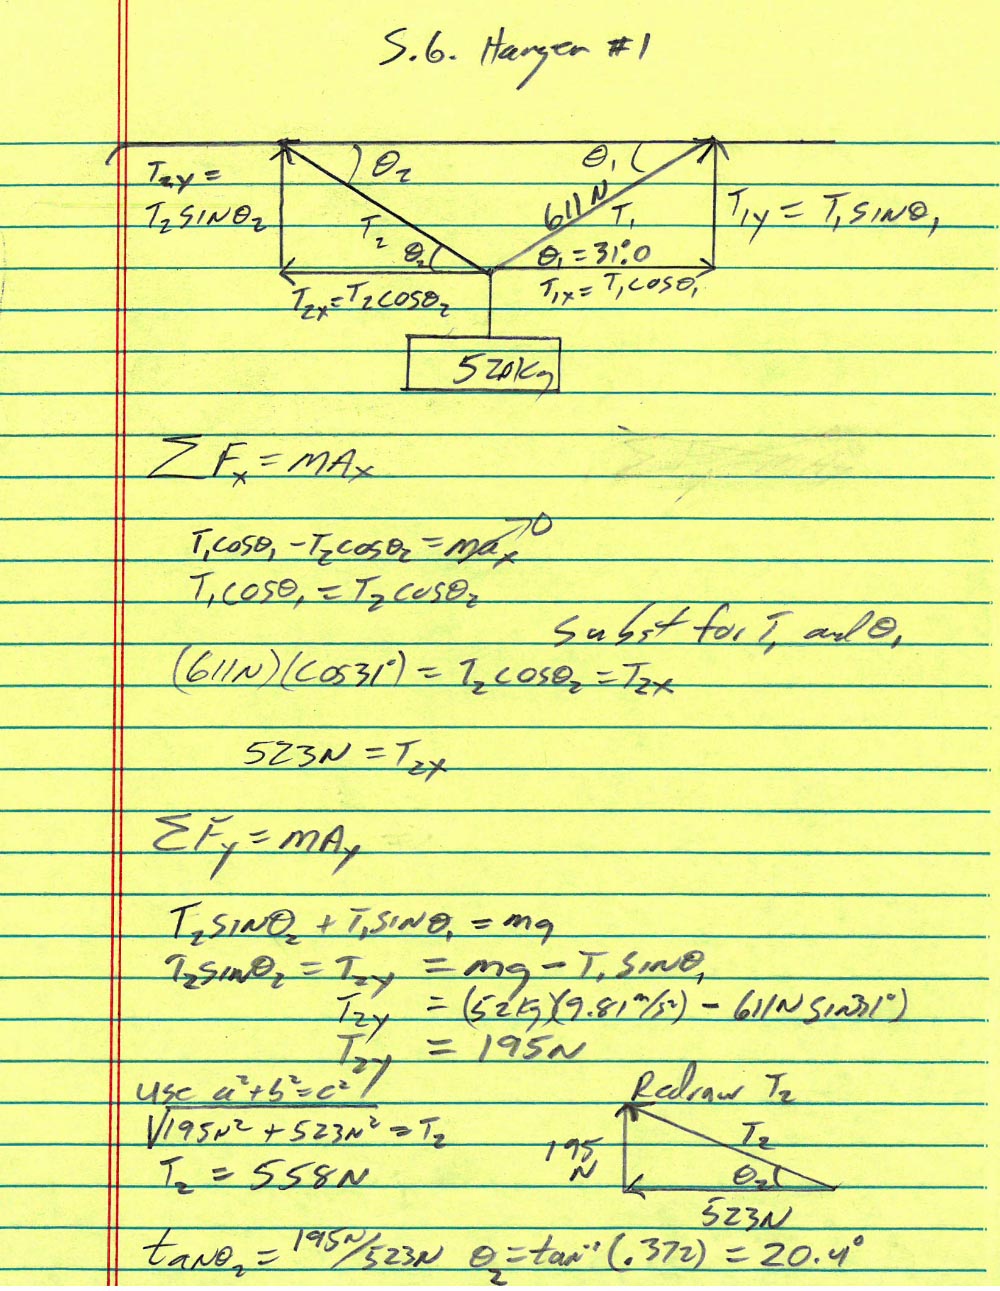 S.G. Hanger #1
θ₂
θ₁
T₂y =
T₂SINθ₂
611N
T₁
T₁y = T₁SINθ₁
T₂
θ₂
θ₁ = 31.0
T₂x = T₂COSθ₂
T₁x = T₁COSθ₁
52.0Kg
ΣFx = MAx
T₁COSθ₁ - T₂COSθ₂ = max → 0
T₁COSθ₁ = T₂COSθ₂
Subst for T₁ and θ₁
(611N)(COS31°) = T₂COSθ₂ = T₂x
523N = T₂x
ΣFy = MAy
T₂SINθ₂ + T₁SINθ₁ = mg
T₂SINθ₂ = T₂y = mg - T₁SINθ₁
T₂y = (52kg)(9.81m/s²) - 611N SIN31°)
T₂y = 195N
USE a²+b²=c²
Redraw T₂
√195N² + 523N² = T₂
T₂ = 558N
195
N
T₂
θ₂
523N
tanθ₂ = 195N/523N θ₂ = tan⁻¹(.372) = 20.4°